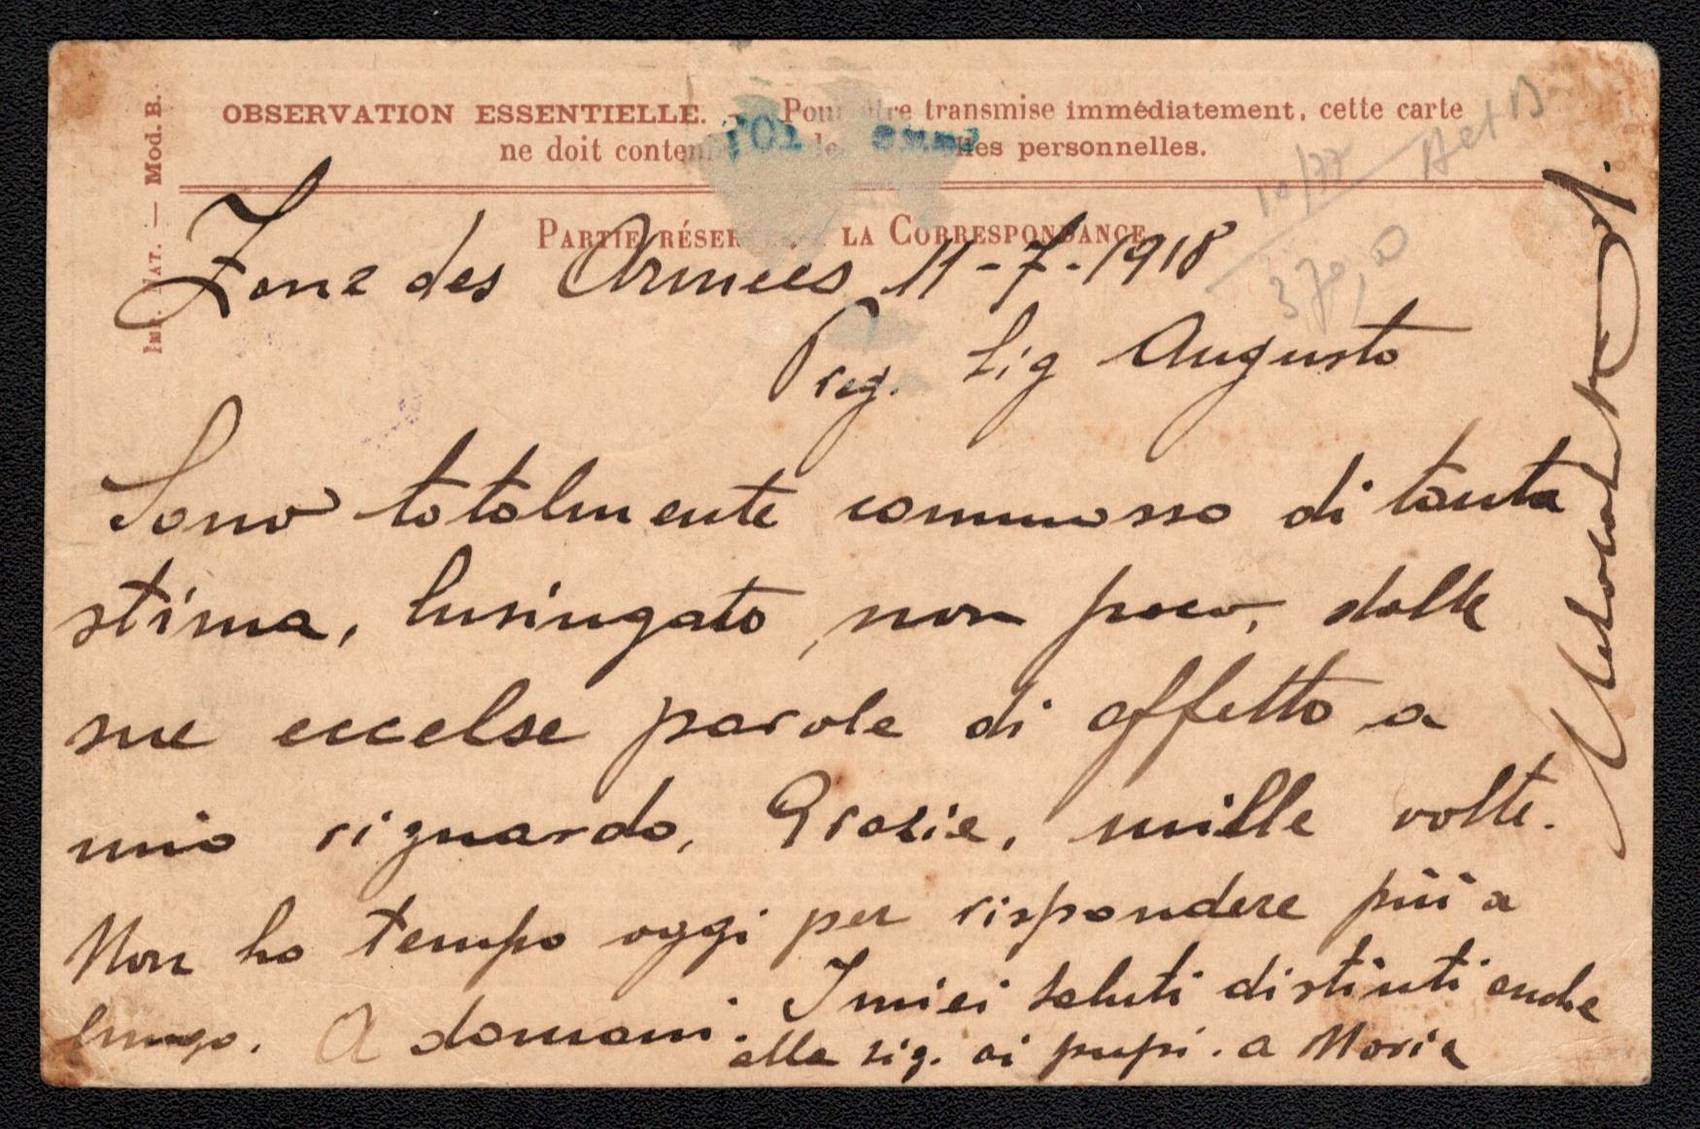 Mod. B.
OBSERVATION ESSENTIELLE. Pour être transmise immédiatement, cette carte
ne doit contenir personnelles.
PARTIE RÉSERVÉE LA CORRESPONDANCE
Zone des Armées 11-7-1918
Preg. Sig Augusto
Sono totalmente commosso di tanta
stima, lusingato, non poco, dalle
sue eccelse parole di affetto a
mio riguardo, Grazie, mille volte.
Non ho tempo oggi per rispondere più a
lungo. A domani. I miei saluti distinti anche
alla sig. ai pupi. a Maria
10/77 A et B
370,0